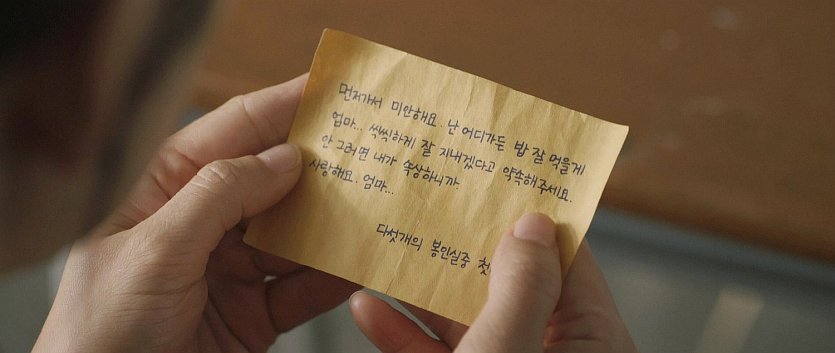 먼저가서 미안해요. 난 어디가든 밥 잘 먹을게
엄마... 씩씩하게 잘 지내겠다고 약속해주세요.
안 그러면 내가 속상하니까
사랑해요. 엄마...
다섯개의 봉인실중 첫